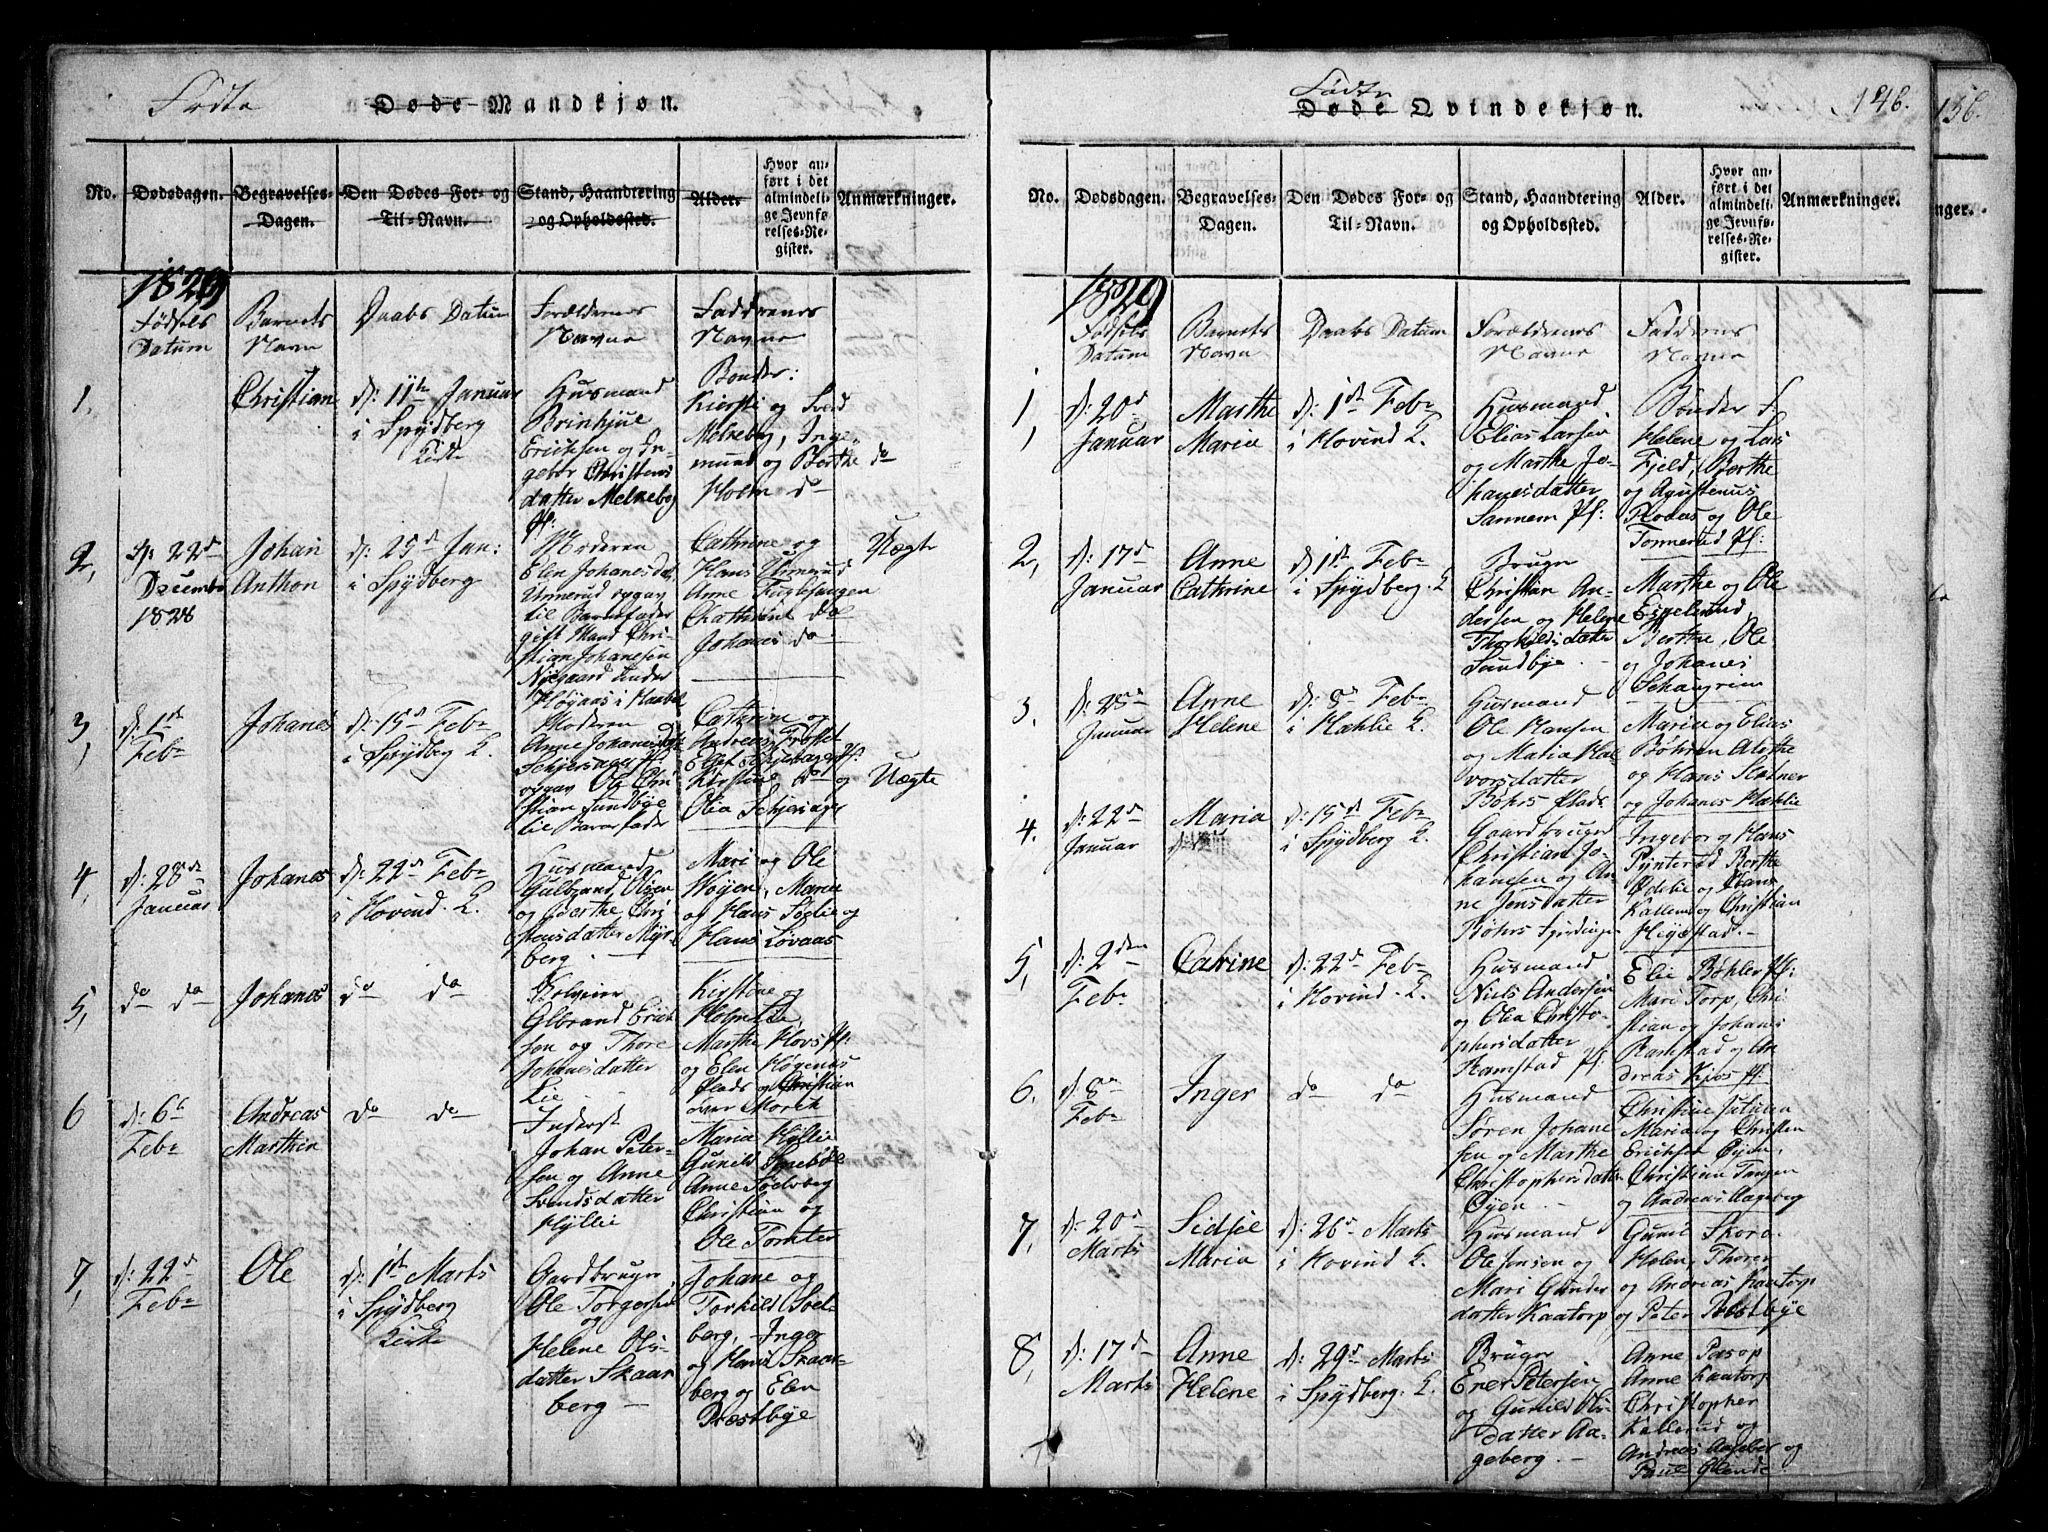 Fødte Døde Mandkjøn.
No. Dødsdagen. Begravelses-Dagen. Den Dødes For- og Til-Navn. Stand, Haandtering og Opholdssted. Alder. Hvor anført i det almindelige Jevnførelses-Register. Anmærkninger.
1829
Fødsels Datum
Barnets Navn
Daabs Datum
Forældrenes Navne
Faddrenes Navne
1,
Christian
d: 11te Januar
i Spydberg
Kirke
Husmand
Brinhjue
Ericksen og In-
gebor Christens
datter Melneby
Pf:
Bønder:
Kiersti og Svend
Melneby, Inge-
mund og Berthe do
Holm do
2,
d: 22d
Decembr
1828
Johan
Anthon
d: 25d Jan:
i Spydberg
Moderen
Elen Johanesdat
Unnerud opgav
til Barnefader
gift Mand Chri-
stian Johanesen
Nÿegaard under
Høyaas i Haabøl
Cathrine og
Hans Unnerud
Anne Fuglesangen
Chathrine do
Johanes do
Uægte
3,
d: 1ste
Febr
Johanes
d: 15d Febr
i Spydberg K.
Moderen
Anne Johanesdat
Schiersager Pf:
opgav Ole Chri-
stian Sundbye
til Barnefader
Cathrine og
Andreas
Kirstine do og
Olia Schiersager
Uægte
4,
d: 28de
Januar
Johanes
d: 22d Febr
i Hovind K.
Husmand
Gulbrand Olsen
og Berthe Chri-
stensdatter Myr-
berg.
Mari og Ole
Woyen, Marie
og Hans Soglie og
Hans Løvaas
5,
do do
Johanes
do do
Glbrand Erick-
sen og Thore
Johanesdatter
Lie
Kirstine og
Marthe Hovs Pf:
og Elen Høgenes
Plads og Christian
6
d: 6te
Febr
Andreas
Marthin
do do
Inderst
Johan Peter-
sen og Anne
Svendsdatter
Hyllie
Maria Hyllie
Gunild
Anne Soelberg
Christian og
Ole Tomter
7,
d: 22d
Febr
Ole
d: 1ste Marts
i Spydberg
Kirke
Gardbruger
Ole Torgersen
og
Helene Ols-
datter Skaar
berg
Johane og
Torkild Soel-
berg, Inger
og Hans Skaar-
berg og Elen
Præstbye
Fødte Døde Qvindekjøn.
146.
156.
No. Dødsdagen. Begravelses-Dagen. Den Dødes For- og Til-Navn. Stand, Haandtering og Opholdssted. Alder. Hvor anført i det almindelige Jevnførelses-Register. Anmærkninger.
nger.
1829
Fødsels Datum
Barnets Navn
Daabs Datum
Forældrenes Navne
Faddernes Navne
1,
d: 20d
Januar
Marthe
Maria
d: 1ste Febr
i Hovind K.
Husmand
Elias Larsen
og Marthe Jo-
hanesdatter
Sannem Pf:
Bønder f.
Helene og Lars
Fjeld, Berthe
og Agustenus
og Ole
Tonnerud Pf:
2,
d: 17d
Januar
Anne
Cathrine
d: 1ste Febr
i Spydberg. K
Bruger
Christian An-
dersen og Helene
Thorkildsdatter
Sundbye.
Marthe og Ole
Berthe, Ole
og Johanes
Schaugrim
3.
Januar
Anne
Helene
d: 8de Febr
i Hæhlie K.
Husmand
Ole Hansen
og Maria Hal-
vorsdatter
Bøhrs Plads
Maria og Elias
og Hans
og Johanes Hæhlie
4.
d: 22de
Januar
Maria
d: 15d Febr
i Spydberg K.
Gaardbruger
Christian Jo-
hansen og An-
ne Jensdatter
Bøhrs
Ingebor og Hans
Pynterud Berthe
og Christian
5,
d: 2den
Febr
Catrine
d: 22d Febr
i Hovind. K.
Husmand
Niels Andersen
og Olia Christo-
phersdatter
Ramstad Pf:
Elie Bøhler Pf:
Mari Torp, Chri-
stian og Johanes
Ramstad og An
dreas Kjos Pf
6.
d: 8de
Febr
Inger
do do
Husmand
Søren Johane
sen og Marthe
Christophersdatter
Øyen.
Christine
Maria og Christen
Erichsen Øyen,
Christian Tangen
og Andreas Aageberg
7,
d: 20d
Marts
Sidsie
Maria
d: 26d Marts
i Hovind K.
Husmand
Ole Jensen og
Mari Gunder
datter Kaatorp
Gunil Skoro
Helene Thoren
og Andreas Kaatorp
og Peter Præstbye
8,
d: 17d
Marts
Anne
Helene
d: 29d Marts
i Spydberg. K.
Bruger
Ener Petersen
og Gunild Ols-
datter Aa-
geberg.
Anne Pasop
Anne Kaatorp
Christopher
Kallerud og
Andreas Aageber og
Paul Glende